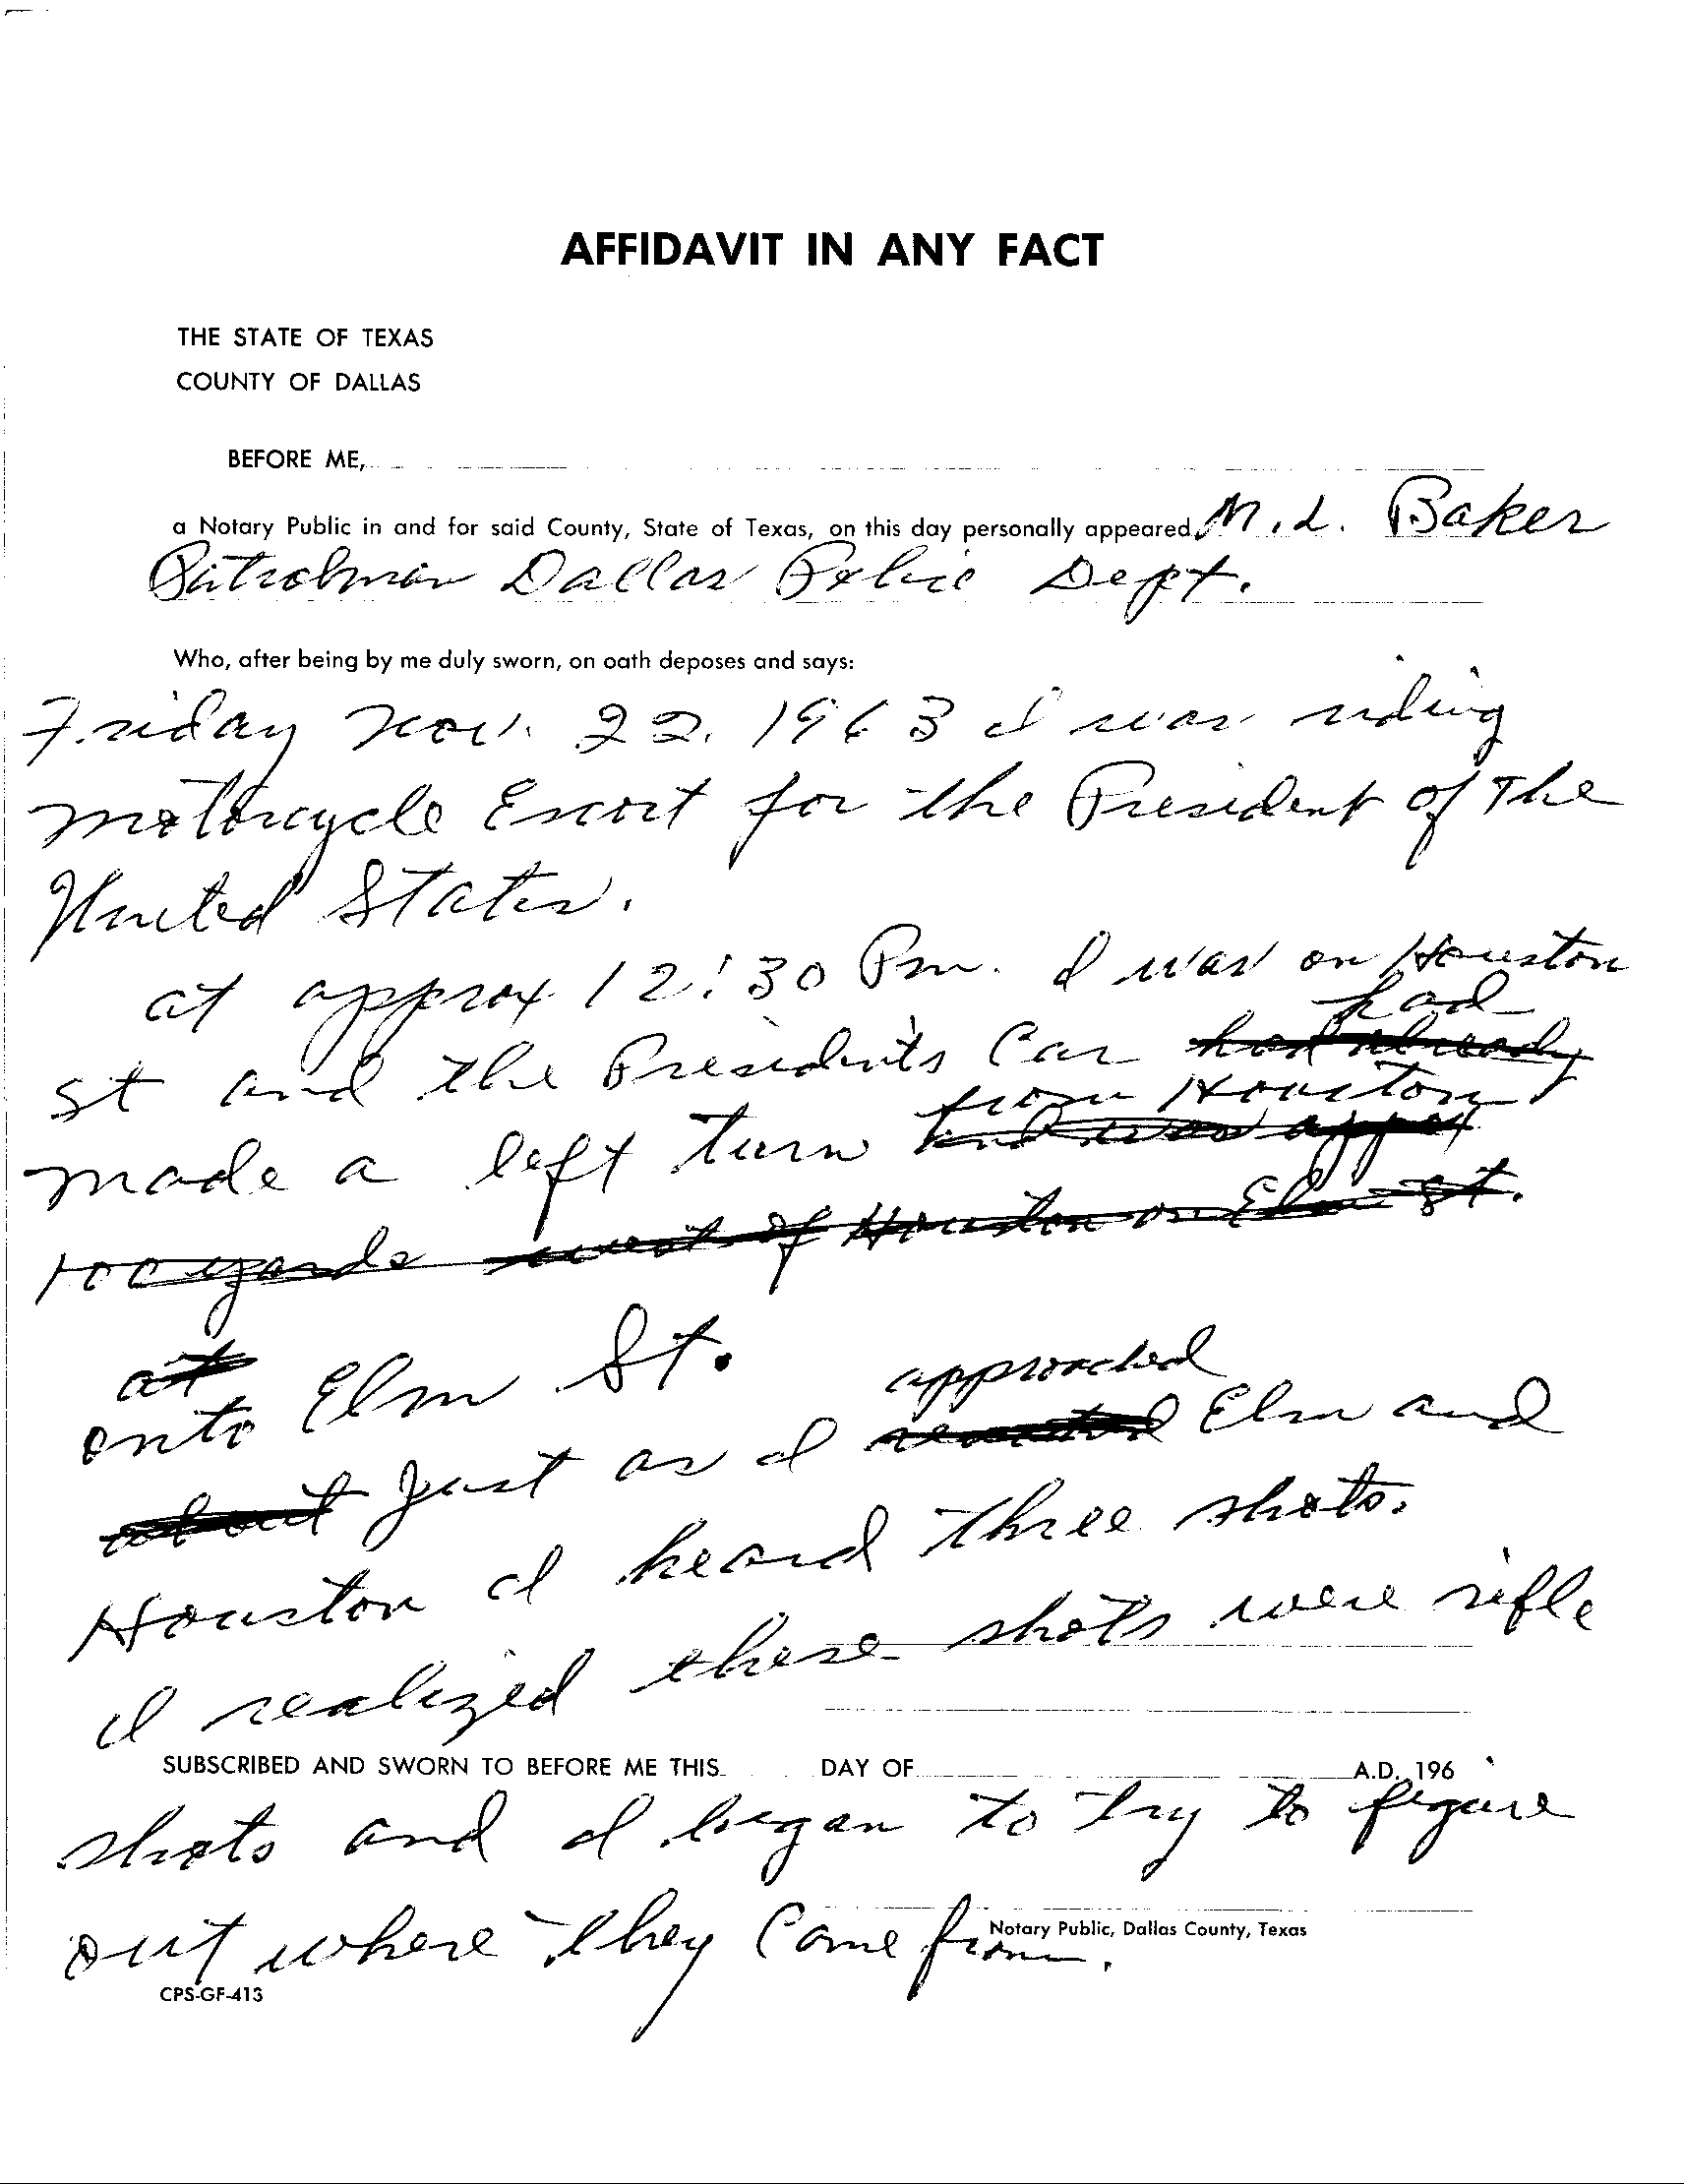 AFFIDAVIT IN ANY FACT
THE STATE OF TEXAS
COUNTY OF DALLAS
BEFORE ME,
a Notary Public in and for said County, State of Texas, on this day personally appeared M. L. Baker
Patrolman Dallas Police Dept.
Who, after being by me duly sworn, on oath deposes and says:
Friday Nov. 22, 1963 I was riding
motorcycle Escort for the President of The
United States.
at approx 12:30 Pm. I was on Houston
had
st and the Presidents Car had already
from Houston
made a left turn and was appox
100 yards west of Houston on Elm st.
at
onto Elm St.
approached
about just as I Elm and
Houston I heard three shots.
I realized these shots were rifle
SUBSCRIBED AND SWORN TO BEFORE ME THIS DAY OF A.D. 196
shots and I began to try to figure
out where they Came from.
Notary Public, Dallas County, Texas
CPS-GF-413